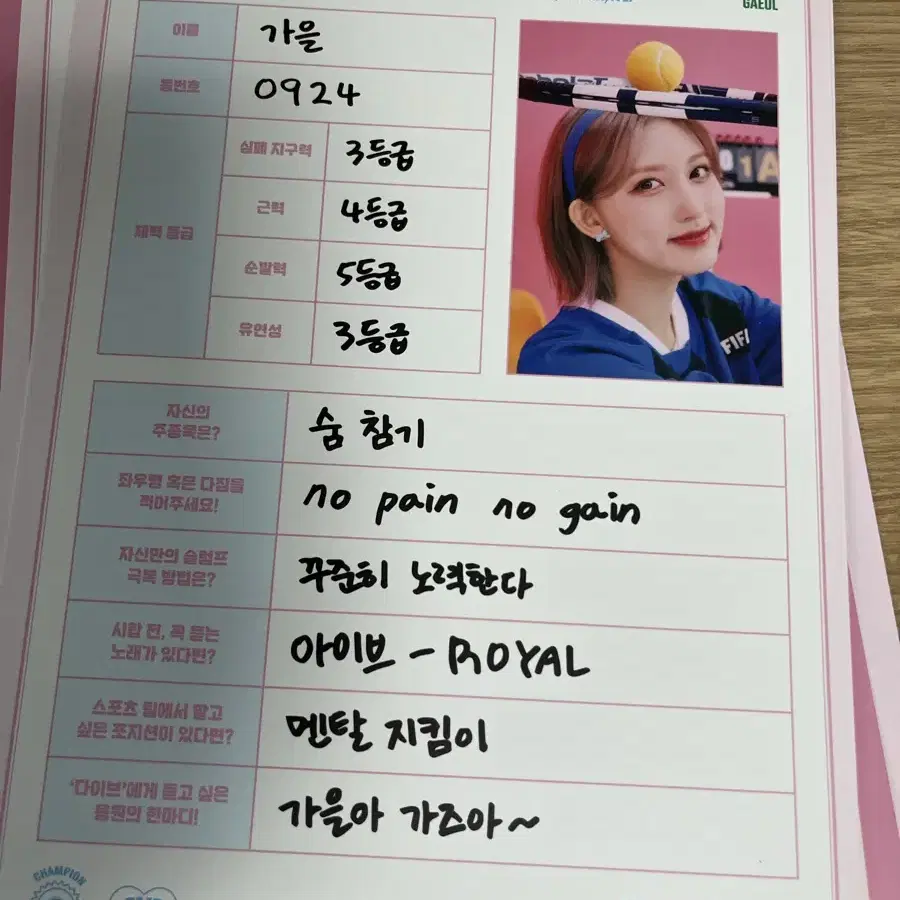 GAEUL
이름
가을
등번호
0924
체력 등급
심폐 지구력
3등급
근력
4등급
순발력
5등급
유연성
3등급
1A
FIFA
자신의
주종목은?
숨 참기
좌우명 혹은 다짐을
적어주세요!
no pain no gain
자신만의 슬럼프
극복 방법은?
꾸준히 노력한다
시합 전, 꼭 듣는
노래가 있다면?
아이브 - ROYAL
스포츠 팀에서 맡고
싶은 포지션이 있다면?
멘탈 지킴이
'다이브'에게 듣고 싶은
응원의 한마디!
가을아 가즈아~
CHAMPION